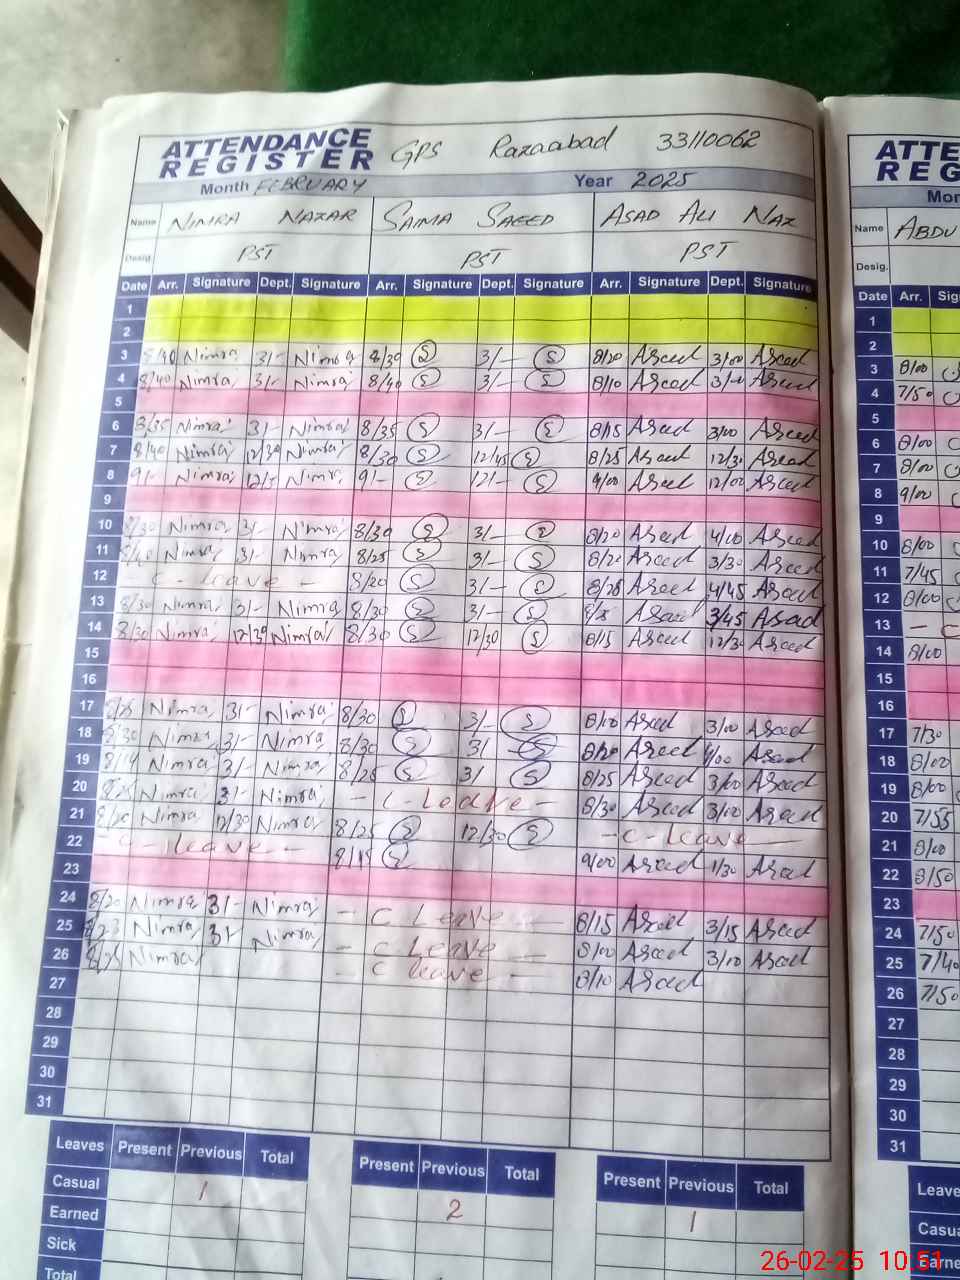 ATTENDANCE REGISTER GPS Razaabad 33110062
Month FEBRUARY Year 2025
Name NIMRA NAZAR SAIMA SAEED ASAD ALI NAZ
Desig. PST PST PST
Date Arr. Signature Dept. Signature Arr. Signature Dept. Signature Arr. Signature Dept. Signature
1
2
3 8/40 Nimra 3/- Nimra 8/30 S 3/- S 8/20 Asad 3/00 Asad
4 8/40 Nimra 3/- Nimra 8/40 S 3/- S 8/10 Asad Asad
5
6 8/35 Nimra 3/- Nimra 8/35 S 3/- S 8/15 Asad 3/00 Asad
7 8/40 Nimra 12/30 Nimra 8/30 S 12/45 S 8/25 Asad 12/30 Asad
8 9/- Nimra Nimra 9/- S 12/- S 9/00 Asad 12/00 Asad
9
10 8/30 Nimra 3/- Nimra 8/30 S 3/- S 8/20 Asad 4/00 Asad
11 Nimra 3/- Nimra 8/25 S 3/- S 8/20 Asad 3/30 Asad
12 - C - leave - 8/20 S 3/- S Asad 4/45 Asad
13 8/30 Nimra 3/- Nimra 8/30 S 3/- S Asad 3/45 Asad
14 8/30 Nimra 12/30 Nimra 8/30 S 12/30 S 8/15 Asad 12/30 Asad
15
16
17 Nimra 3/- Nimra 8/30 S 3/- S 8/10 Asad 3/00 Asad
18 8/30 Nimra 3/- Nimra 8/30 S 3/ S Asad Asad
19 Nimra 3/- Nimra 8/25 S 3/ S 8/25 Asad 3/00 Asad
20 Nimra 3/- Nimra - C - Leave - 8/30 Asad 3/00 Asad
21 8/20 Nimra 12/30 Nimra 8/25 S 12/30 S - C - Leave -
22 - C - leave - 8/15 S 9/00 Asad 1/30 Asad
23
24 8/20 Nimra 3/- Nimra - C Leave - 8/15 Asad 3/15 Asad
25 8/23 Nimra 3/ Nimra - C Leave - 8/00 Asad 3/10 Asad
26 8/25 Nimra - C leave - 8/10 Asad
27
28
29
30
31
Leaves Present Previous Total Present Previous Total Present Previous Total
Casual 1 2 1
Earned
Sick
Total
ATTE
REG
Mon
Name ABDU
Desig.
Date Arr. Sig
1
2
3 8/00
4 7/50
5
6 8/00
7 8/00
8 9/00
9
10 8/00
11 7/45
12 8/00
13 - C
14 8/00
15
16
17 7/30
18 8/00
19 8/00
20 7/55
21 8/00
22 8/50
23
24 7/50
25 7/40
26 7/50
27
28
29
30
31
Leave
Casua
Earne
26-02-25 10:51